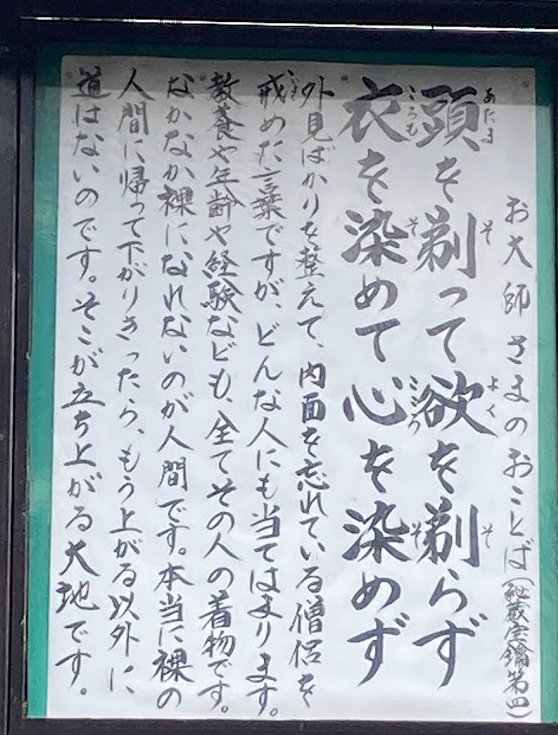 お大師さまのおことば(秘蔵宝鑰第四)
頭を剃って欲を剃らず
衣を染めて心を染めず
外見ばかりを整えて、内面を忘れている僧侶を
戒めた言葉ですが、どんな人にも当てはまります。
教養や年齢や経験なども、全てその人の着物です。
なかなか裸になれないのが人間です。本当に裸の
人間に帰って下がりきったら、もう上がる以外に
道はないのです。そこが立ち上がる大地です。